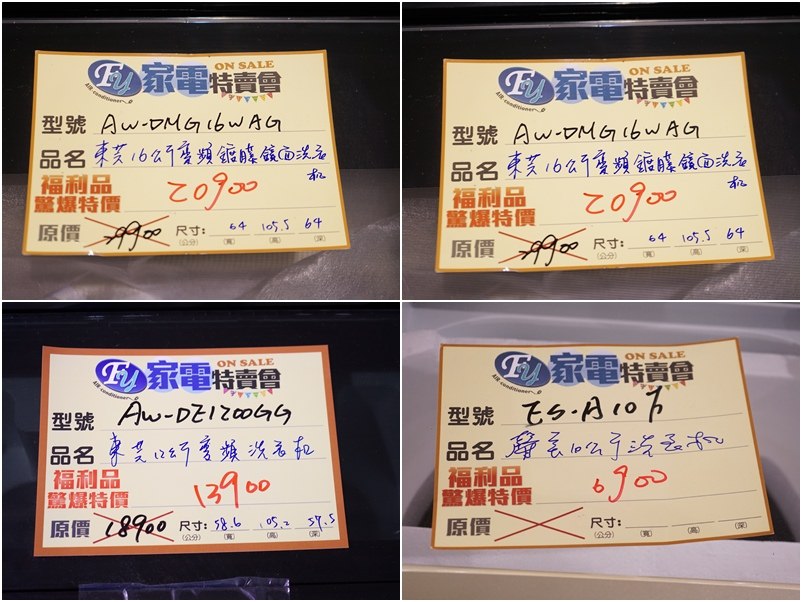 FU 家電特賣會 ON SALE
AIR-conditioner
型號 AW-DMG16WAG
品名 東芝16公斤變頻鍍膜鏡面洗衣机
福利品
驚爆特價 20900
原價 29900 尺寸: 64 105.5 64
(公分) (寬) (高) (深)
FU 家電特賣會 ON SALE
AIR-conditioner
型號 AW-DMG16WAG
品名 東芝16公斤變頻鍍膜鏡面洗衣机
福利品
驚爆特價 20900
原價 29900 尺寸: 64 105.5 64
(公分) (寬) (高) (深)
FU 家電特賣會 ON SALE
AIR-conditioner
型號 AW-DE1200GG
品名 東芝12公斤變頻洗衣机
福利品
驚爆特價 13900
原價 18900 尺寸: 58.6 105.2 57.5
(公分) (寬) (高) (深)
FU 家電特賣會 ON SALE
AIR-conditioner
型號 ES-A10F
品名 聲寶10公斤洗衣机
福利品
驚爆特價 6900
原價 尺寸:
(公分) (寬) (高) (深)